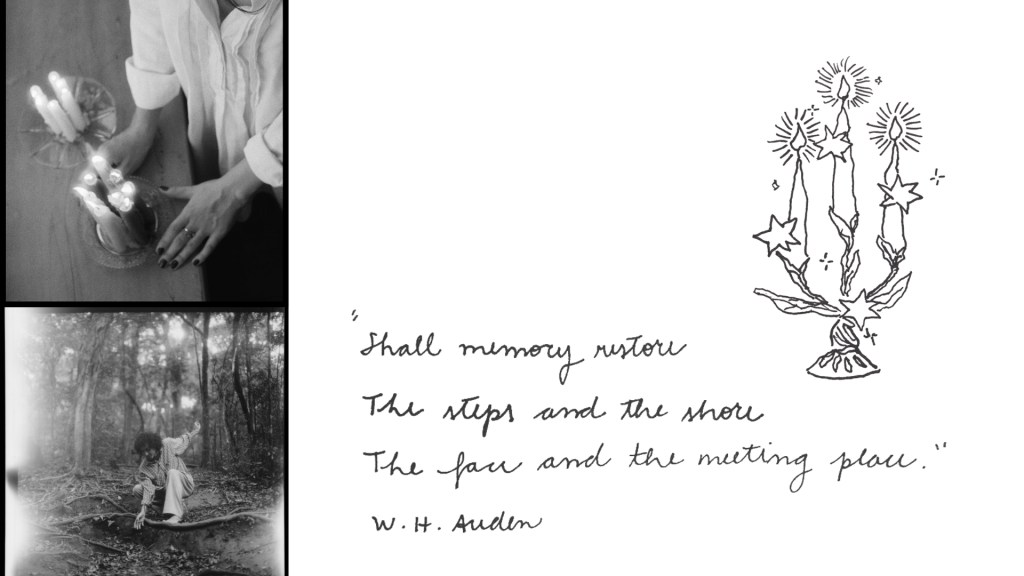 "Shall memory restore
The steps and the shore
The face and the meeting place."
W. H. Auden